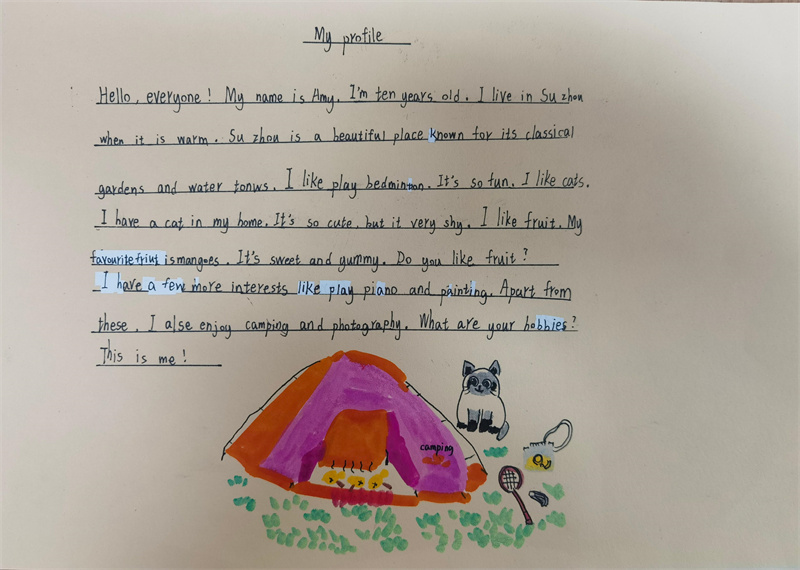 My profile
Hello, everyone! My name is Amy. I'm ten years old. I live in Su zhou
when it is warm. Su zhou is a beautiful place known for its classical
gardens and water tonws. I like play bedminton. It's so fun. I like cats.
I have a cat in my home. It's so cute, but it very shy. I like fruit. My
favourite friut is mangoes. It's sweet and yummy. Do you like fruit?
I have a few more interests like play piano and painting. Apart from
these, I alse enjoy camping and photography. What are your hobbies?
This is me!
camping